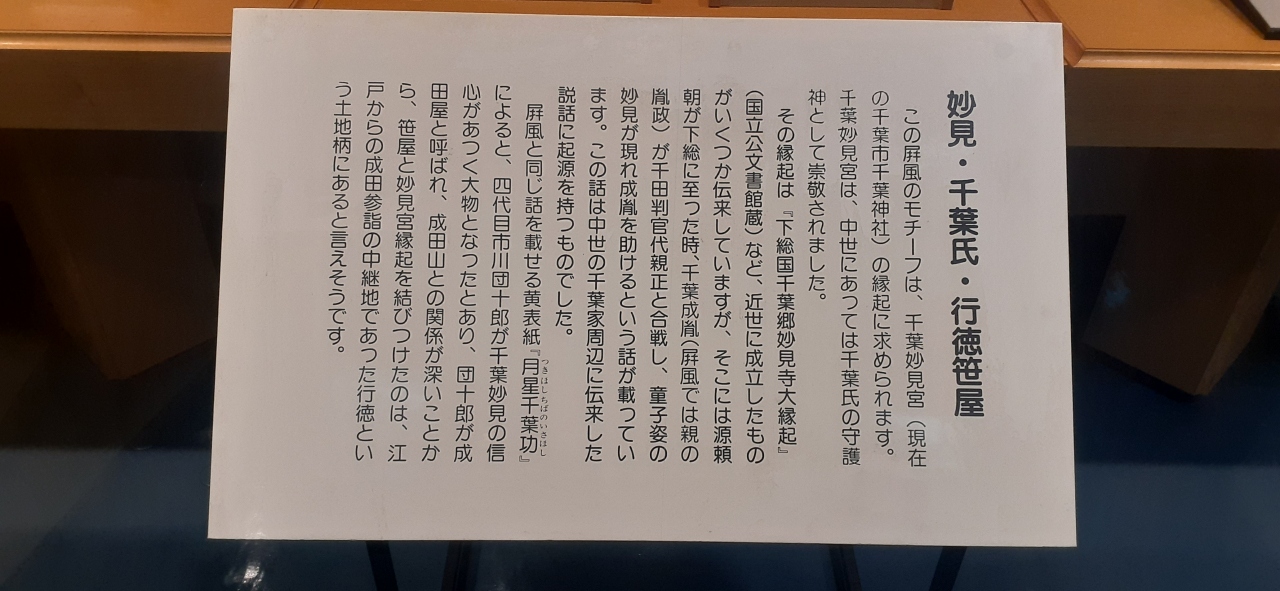 妙見・千葉氏・行徳笹屋
この屛風のモチーフは、千葉妙見宮（現在
の千葉市千葉神社）の縁起に求められます。
千葉妙見宮は、中世にあっては千葉氏の守護
神として崇敬されました。
その縁起は『下総国千葉郷妙見寺大縁起』
（国立公文書館蔵）など、近世に成立したもの
がいくつか伝来していますが、そこには源頼
朝が下総に至った時、千葉成胤（屛風では親の
胤政）が千田判官代親正と合戦し、童子姿の
妙見が現れ成胤を助けるという話が載ってい
ます。この話は中世の千葉家周辺に伝来した
説話に起源を持つものでした。
屛風と同じ話を載せる黄表紙『月星千葉功』
つきほしちばのいさほし
によると、四代目市川団十郎が千葉妙見の信
心があつく大物となったとあり、団十郎が成
田屋と呼ばれ、成田山との関係が深いことか
ら、笹屋と妙見宮縁起を結びつけたのは、江
戸からの成田参詣の中継地であった行徳とい
う土地柄にあると言えそうです。